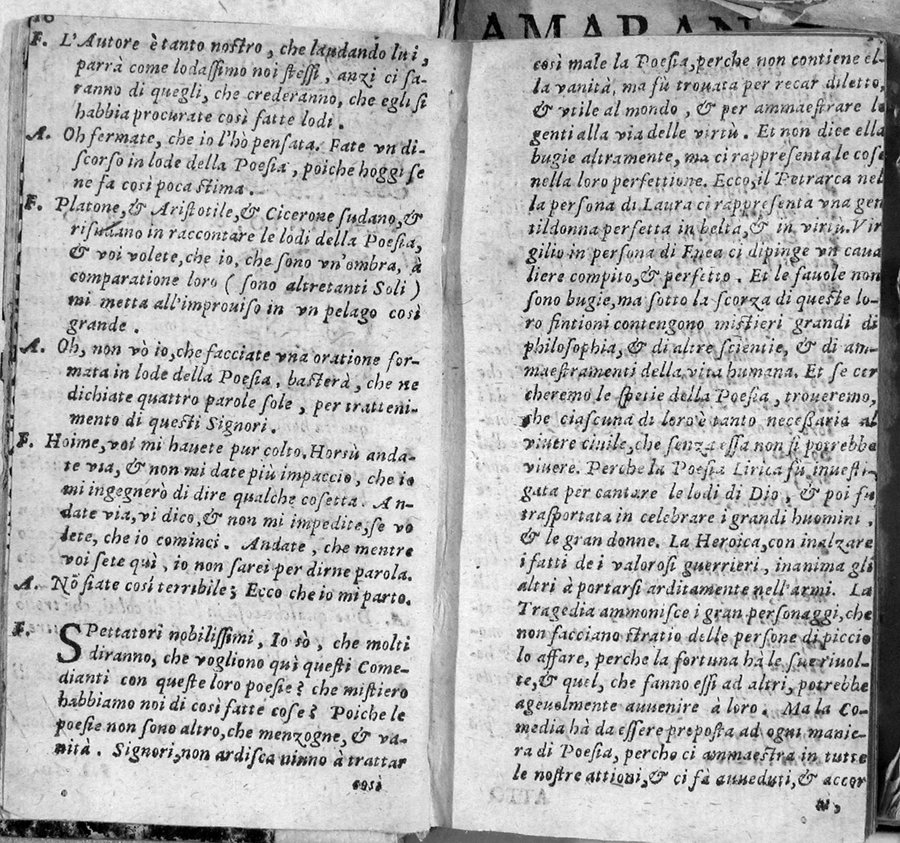 AMARAN
16
F. L'Autore è tanto nostro, che laudando lui,
parrà come lodassimo noi stessi, anzi ci sa-
ranno di quegli, che crederanno, che egli si
habbia procurate così fatte lodi.
A. Oh fermate, che io l'hò pensata. Fate vn di-
scorso in lode della Poesia, poiche hoggi se
ne fa così poca stima.
F. Platone, & Aristotile, & Cicerone sudano, &
risudano in raccontare le lodi della Poesia,
& voi volete, che io, che sono vn'ombra, à
comparatione loro (sono altretanti Soli)
mi metta all'improuiso in vn pelago così
grande.
A. Oh, non vò io, che facciate vna oratione for-
mata in lode della Poesia, basterà, che ne
dichiate quattro parole sole, per tratteni-
mento di questi Signori.
F. Hoime, voi mi hauete pur colto. Horsù anda-
te via, & non mi date più impaccio, che io
mi ingegnerò di dire qualche cosetta. An-
date via, vi dico, & non mi impedite, se vo
lete, che io cominci. Andate, che mentre
voi sete quì, io non sarei per dirne parola.
A. Nõ siate così terribile; Ecco che io mi parto.
F. SPettatori nobilissimi, Io sò, che molti
diranno, che vogliono quì questi Come-
dianti con queste loro poesie? che mistiero
habbiamo noi di così fatte cose? Poiche le
poesie non sono altro, che menzogne, & va-
nità. Signori, non ardisca niuno à trattar
così
così male la Poesia, perche non contiene el-
la vanità, ma fù trouata per recar diletto,
& vtile al mondo, & per ammaestrare le
genti alla via delle virtù. Et non dice ella
bugie altramente, ma ci rappresenta le cose
nella loro perfettione. Ecco, il Petrarca nel
la persona di Laura ci rappresenta vna gen
tildonna perfetta in beltà, & in virtù. Vir
gilio in persona di Enea ci dipinge vn caua
liere compito, & perfetto. Et le fauole non
sono bugie, ma sotto la scorza di queste lo-
ro fintioni contengono mistieri grandi di
philosophia, & di altre scientie, & di am-
maestramenti della vita humana. Et se cer
cheremo le spetie della Poesia, troueremo,
che ciascuna di loro è tanto necessaria al
viuere ciuile, che senza essa non si potrebbe
viuere. Perche la Poesia Lirica fù inuesti-
gata per cantare le lodi di Dio, & poi fu
trasportata in celebrare i grandi huomini,
& le gran donne. La Heroica, con inalzare
i fatti de i valorosi guerrieri, inanima gli
altri à portarsi arditamente nell'armi. La
Tragedia ammonisce i gran personaggi, che
non facciano stratio delle persone di piccio
lo affare, perche la fortuna hà le sue riuol-
te, & quel, che fanno essi ad altri, potrebbe
ageuolmente auuenire à loro. Ma la Co-
media hà da essere preposta ad ogni manie-
ra di Poesia, perche ci ammaestra in tutte
le nostre attioni, & ci fà auueduti, & accor
ti,